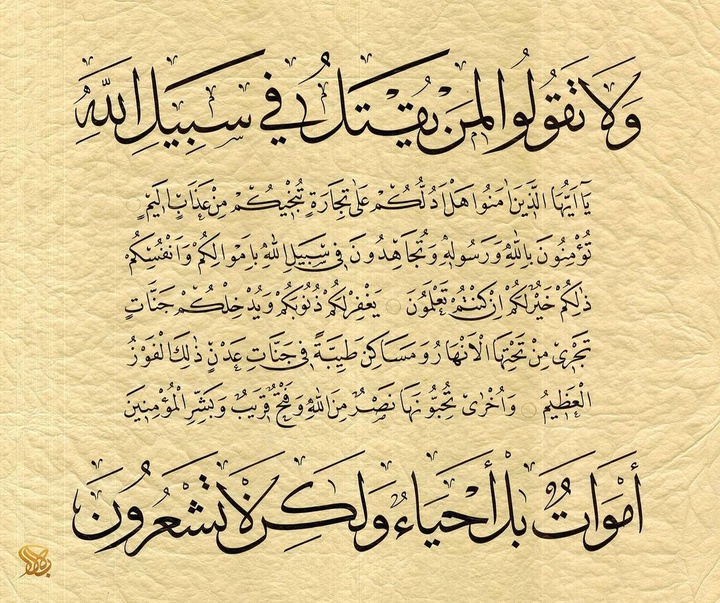 وَلَا تَقُولُوا لِمَنْ يُقْتَلُ فِي سَبِيلِ اللَّهِ
يَآ اَيُّهَا الَّذِينَ اٰمَنُوا هَلْ اَدُلُّكُمْ عَلٰى تِجَارَةٍ تُنْجِيكُمْ مِنْ عَذَابٍ اَلِيمٍ
تُؤْمِنُونَ بِاللّٰهِ وَرَسُولِهٖ وَتُجَاهِدُونَ فِى سَبِيلِ اللّٰهِ بِاَمْوَالِكُمْ وَاَنْفُسِكُمْ
ذٰلِكُمْ خَيْرٌ لَكُمْ اِنْ كُنْتُمْ تَعْلَمُونَ ۝ يَغْفِرْ لَكُمْ ذُنُوبَكُمْ وَيُدْخِلْكُمْ جَنَّاتٍ
تَجْرِى مِنْ تَحْتِهَا الْاَنْهَارُ وَمَسَاكِنَ طَيِّبَةً فِى جَنَّاتِ عَدْنٍ ذٰلِكَ الْفَوْزُ
الْعَظِيمُ ۝ وَاُخْرٰى تُحِبُّونَهَا نَصْرٌ مِنَ اللّٰهِ وَفَتْحٌ قَرِيبٌ وَبَشِّرِ الْمُؤْمِنِينَ
أَمْوَاتٌ بَلْ أَحْيَاءٌ وَلَكِنْ لَا تَشْعُرُونَ